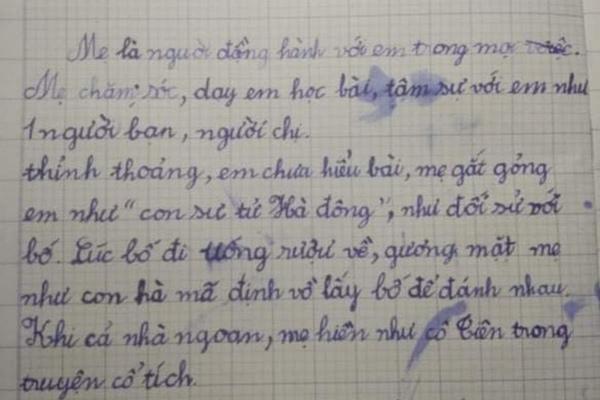 Mẹ là người đồng hành với em trong mọi việc.
Mẹ chăm sóc, dạy em học bài, tâm sự với em như
1 người bạn, người chị.
thỉnh thoảng, em chưa hiểu bài, mẹ gắt gỏng
em như "con sư tử Hà đông", như đối sử với
bố. Lúc bố đi uống rượu về, gương mặt mẹ
như con hà mã định vồ lấy bố để đánh nhau.
Khi cả nhà ngoan, mẹ hiền như cô Tiên trong
truyện cổ tích.